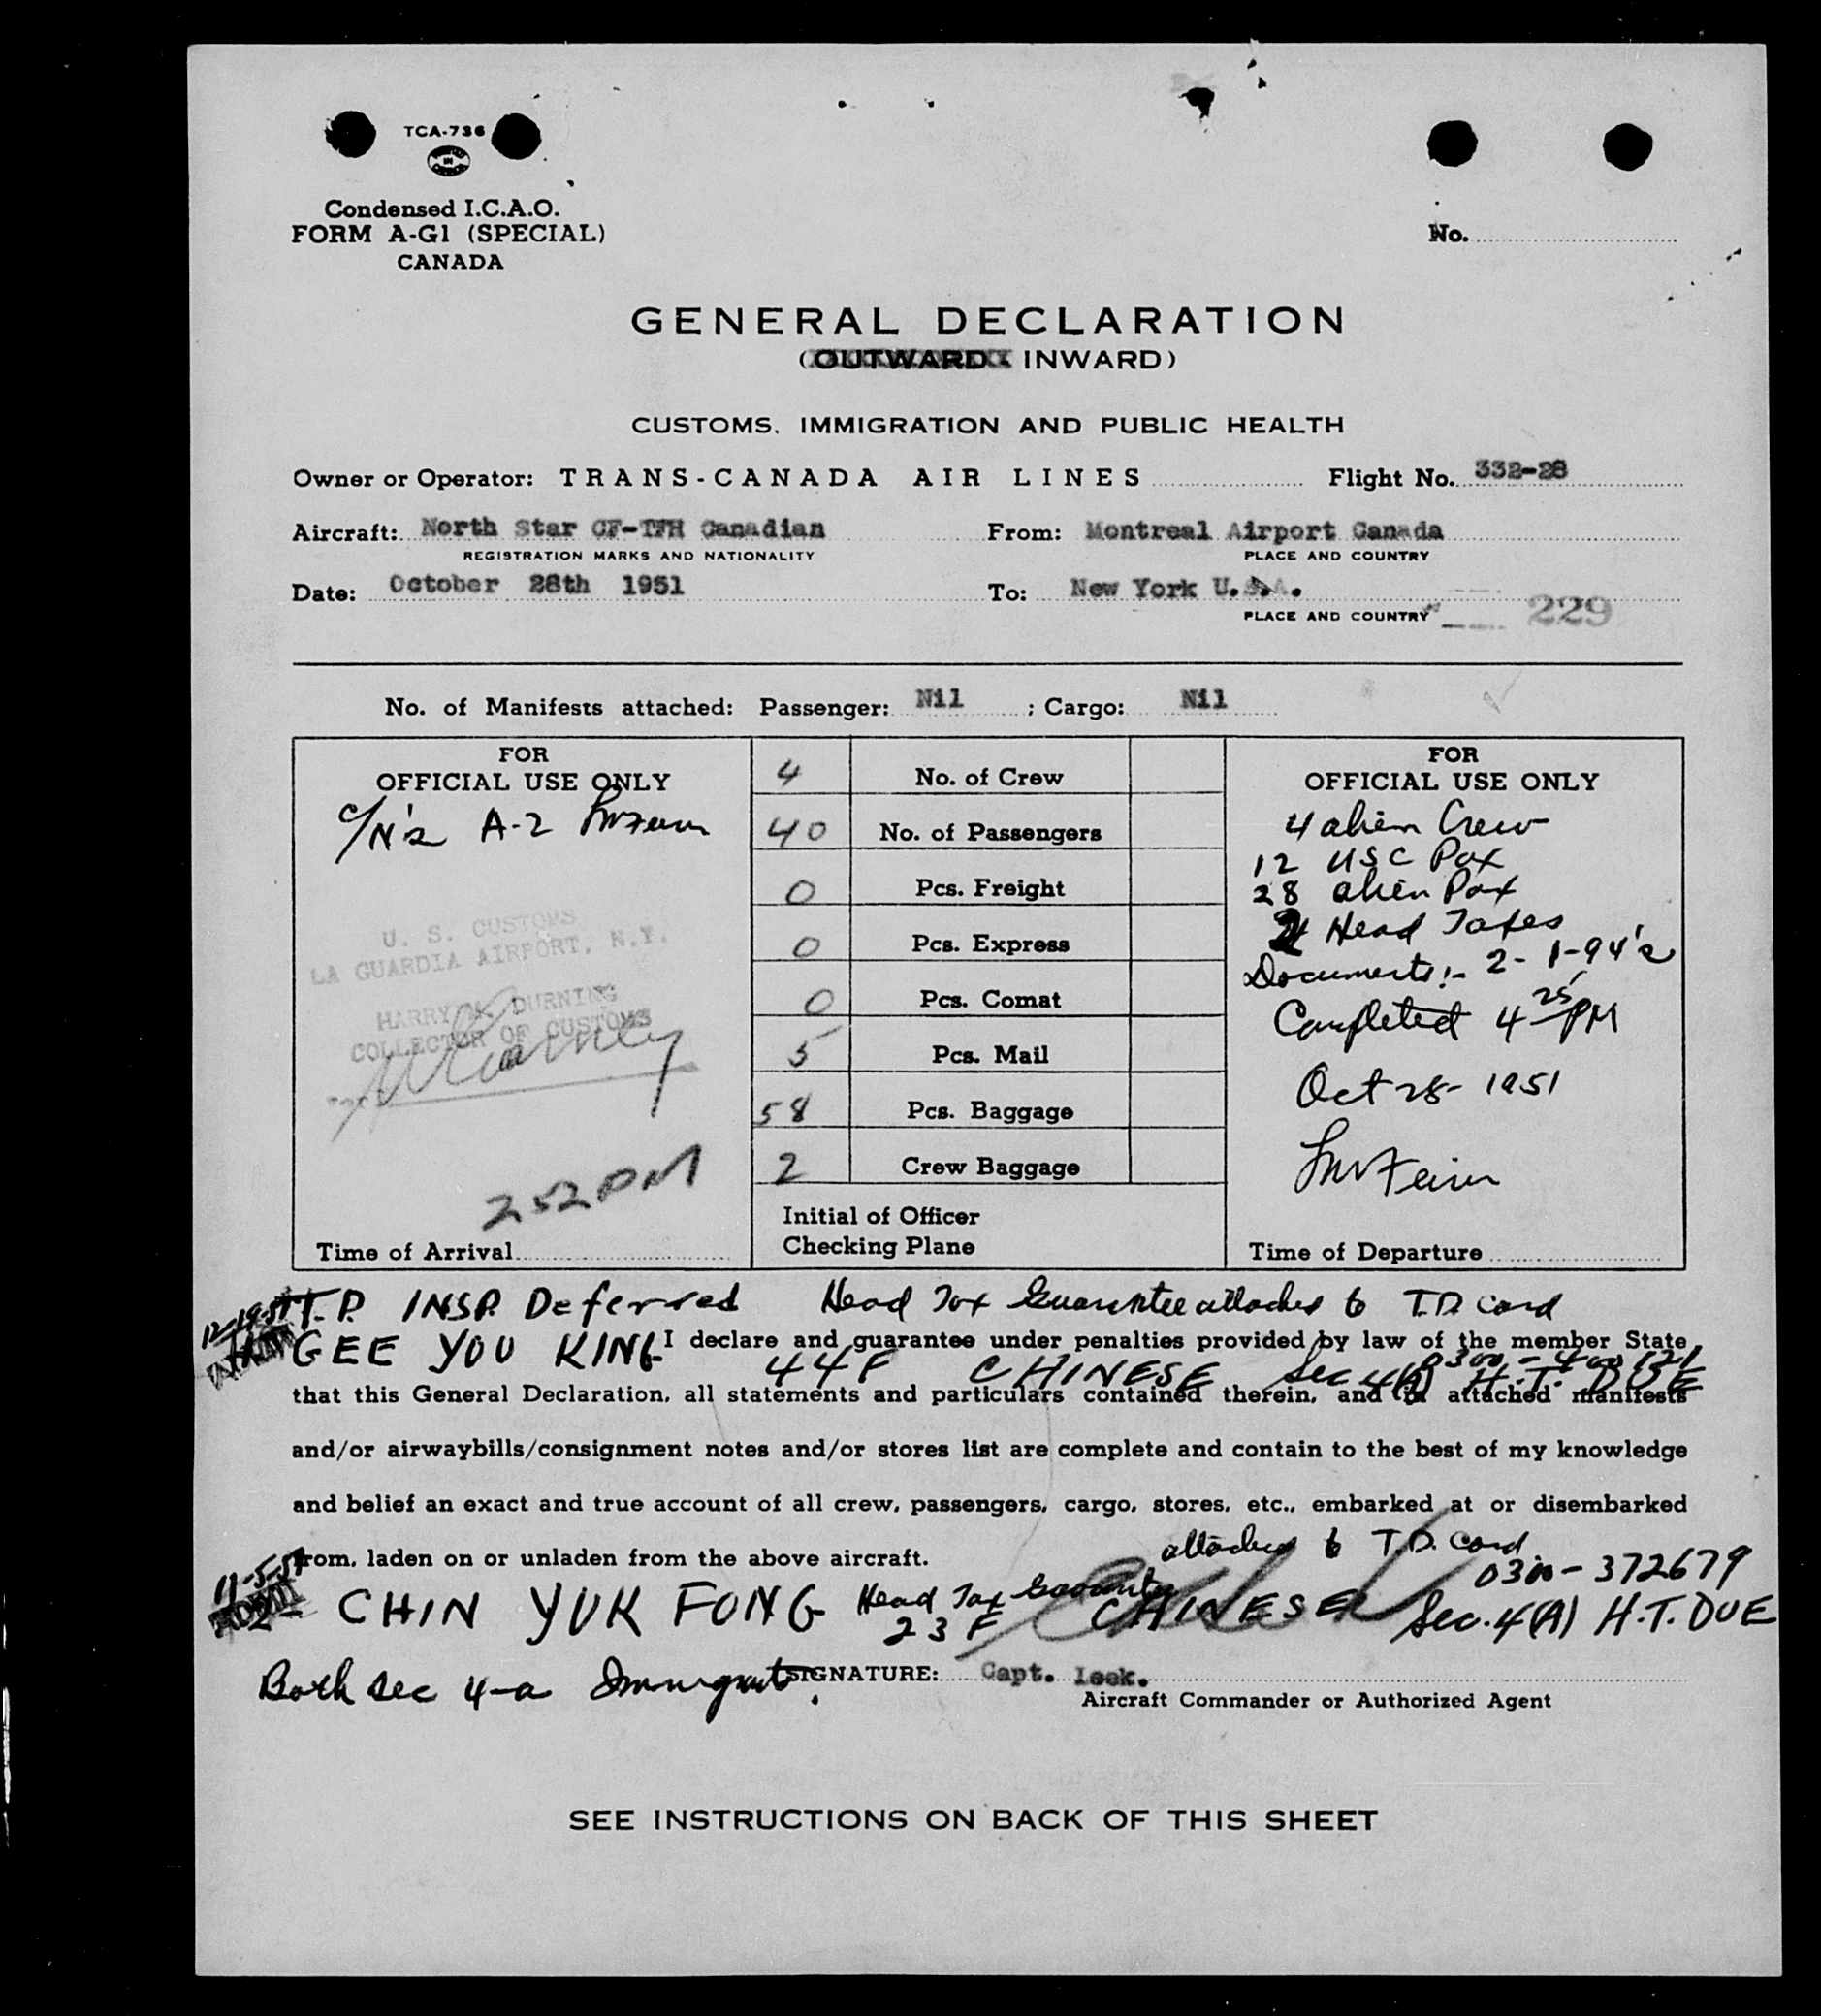 TCA-736
Condensed I.C.A.O.
FORM A-G1 (SPECIAL)
CANADA
No.
GENERAL DECLARATION
(OUTWARD INWARD)
CUSTOMS, IMMIGRATION AND PUBLIC HEALTH
Owner or Operator: TRANS-CANADA AIR LINES Flight No. 332-28
Aircraft: North Star CF-TFH Canadian From: Montreal Airport Canada
REGISTRATION MARKS AND NATIONALITY PLACE AND COUNTRY
Date: October 28th 1951 To: New York U.S.A.
PLACE AND COUNTRY 229
No. of Manifests attached: Passenger: Nil ; Cargo: Nil
FOR
OFFICIAL USE ONLY
C/N's A-2
U. S. CUSTOMS
LA GUARDIA AIRPORT, N.Y.
HARRY M. DURNING
COLLECTOR OF CUSTOMS
252 PM
Time of Arrival
4 No. of Crew
40 No. of Passengers
0 Pcs. Freight
0 Pcs. Express
0 Pcs. Comat
5 Pcs. Mail
58 Pcs. Baggage
2 Crew Baggage
Initial of Officer
Checking Plane
FOR
OFFICIAL USE ONLY
4 alien Crew
12 USC Pax
28 alien Pax
2 Head Taxes
Documents:- 2- 1-94's
Completed 4 25 PM
Oct 28- 1951
Time of Departure
T.P. INSP. Deferred Head Tax Guarantee attached to T.D. Card
12-19-51
GEE YOU KING 44F CHINESE Sec 4(A) H.T. DUE
I declare and guarantee under penalties provided by law of the member State
that this General Declaration, all statements and particulars contained therein, and in attached manifests
and/or airwaybills/consignment notes and/or stores list are complete and contain to the best of my knowledge
and belief an exact and true account of all crew, passengers, cargo, stores, etc., embarked at or disembarked
from, laden on or unladen from the above aircraft.
attached to T.D. Card
11-5-51
0300-372679
2- CHIN YUK FONG Head Tax Guaranty 23F CHINESE Sec. 4(A) H.T. DUE
Both sec 4-a Immigrants.
SIGNATURE: Capt. Leek.
Aircraft Commander or Authorized Agent
SEE INSTRUCTIONS ON BACK OF THIS SHEET